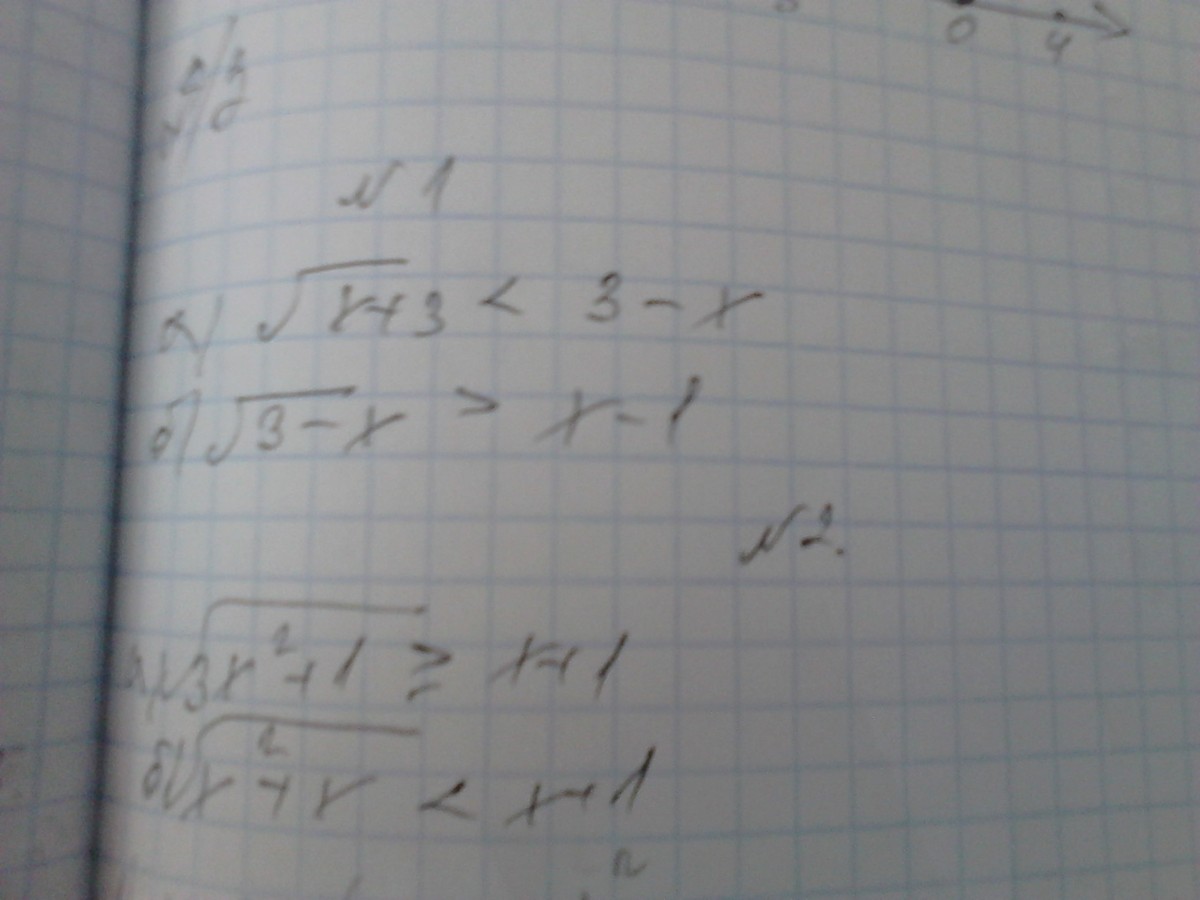 0 4
д/з
N 1
а) √x+3 < 3 - x
б) √3-x > x - 1
N 2.
а) √3x²+1 ≥ x+1
б) √x²+x < x+1